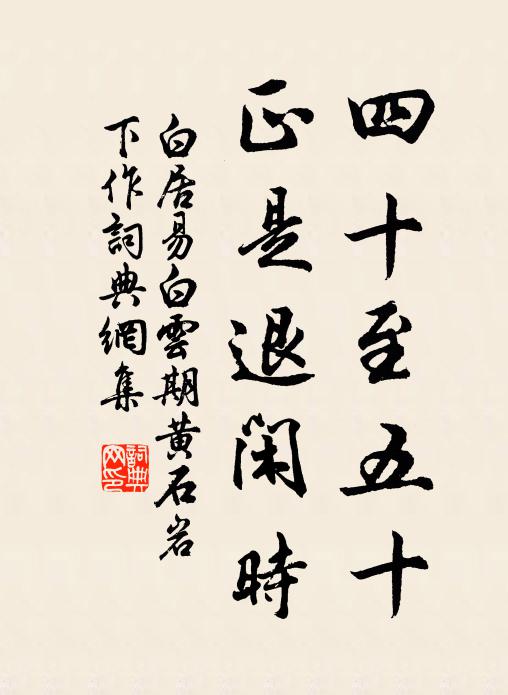 四十至五十
正是退閑時
白居易白雲期黄石岩
下作詞典網集
詞典
网印